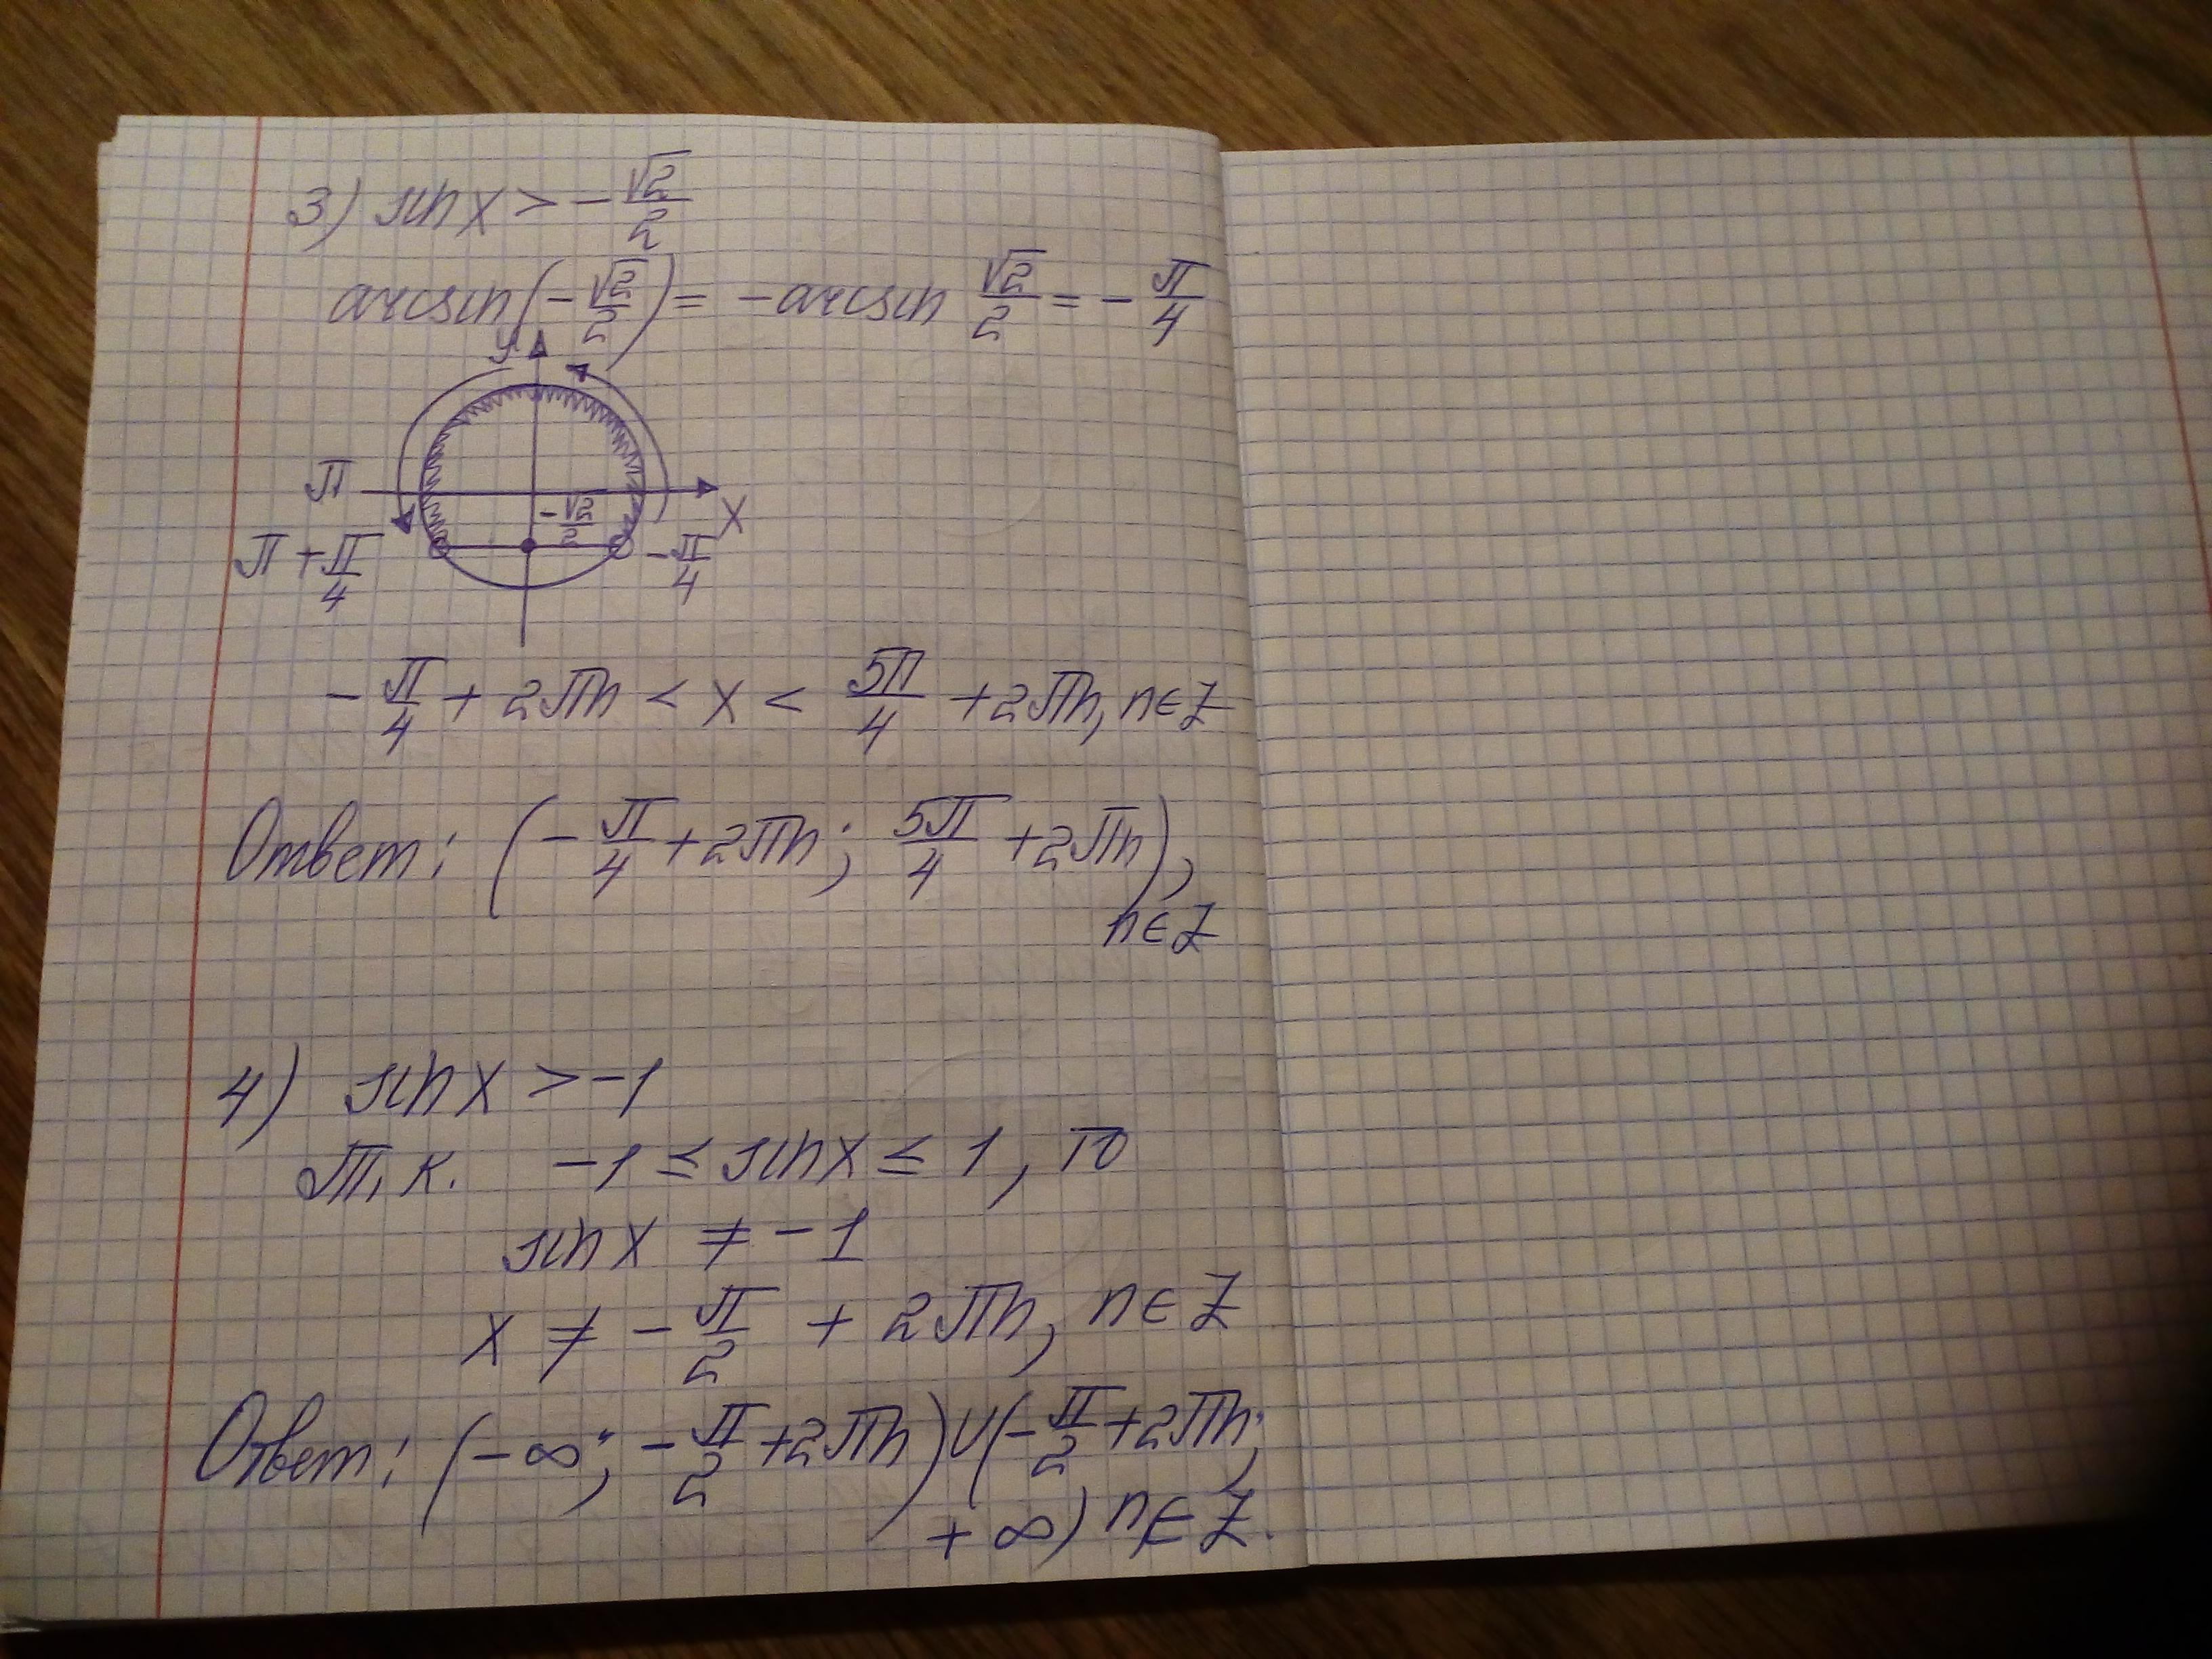 3) sin x > -√2/2
arcsin(-√2/2) = -arcsin √2/2 = -π/4
y
π
-√2/2
x
π + π/4
-π/4
-π/4 + 2πn < x < 5π/4 + 2πn, n∈Z
Ответ: (-π/4 + 2πn; 5π/4 + 2πn),
n∈Z
4) sin x > -1
Т.к. -1 ≤ sin x ≤ 1, то
sin x ≠ -1
x ≠ -π/2 + 2πn, n∈Z
Ответ: (-∞; -π/2 + 2πn) ∪ (-π/2 + 2πn;
+∞) n∈Z.